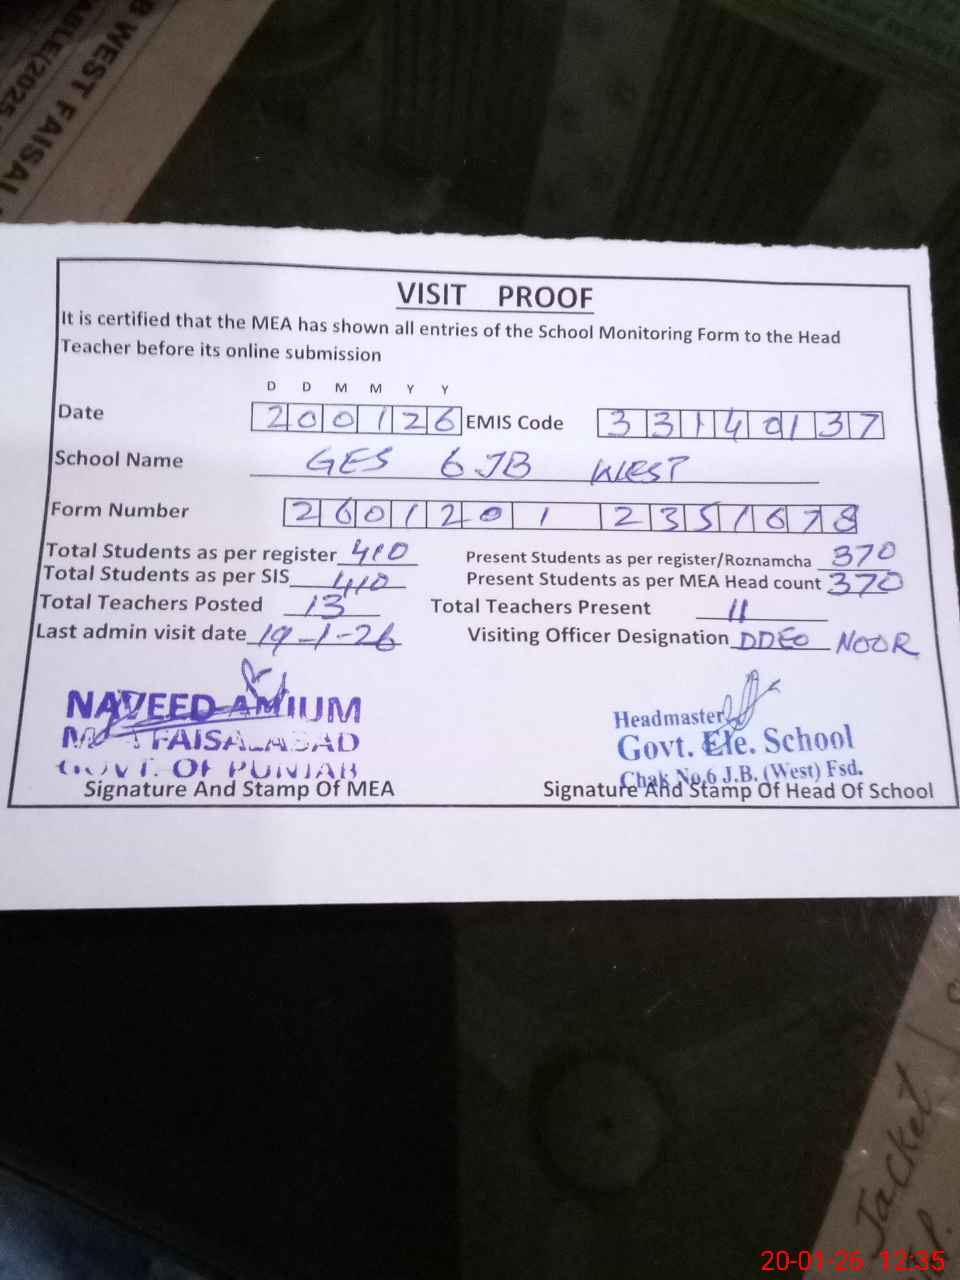 B WEST FAISAL
ABLE(2025
VISIT PROOF
It is certified that the MEA has shown all entries of the School Monitoring Form to the Head
Teacher before its online submission
D D M M Y Y
Date 200126 EMIS Code 33140137
School Name GES 6 JB WEST
Form Number 2601201 2351678
Total Students as per register 410 Present Students as per register/Roznamcha 370
Total Students as per SIS 410 Present Students as per MEA Head count 370
Total Teachers Posted 13 Total Teachers Present 11
Last admin visit date 19-1-26 Visiting Officer Designation DDEO NOOR
NAVEED AMIUM Headmaster
FAISALABAD Govt. Ele. School
GOVT. OF PUNJAB Chak No.6 J.B. (West) Fsd.
Signature And Stamp Of MEA Signature And Stamp Of Head Of School
Jacket
20-01-26 12:35